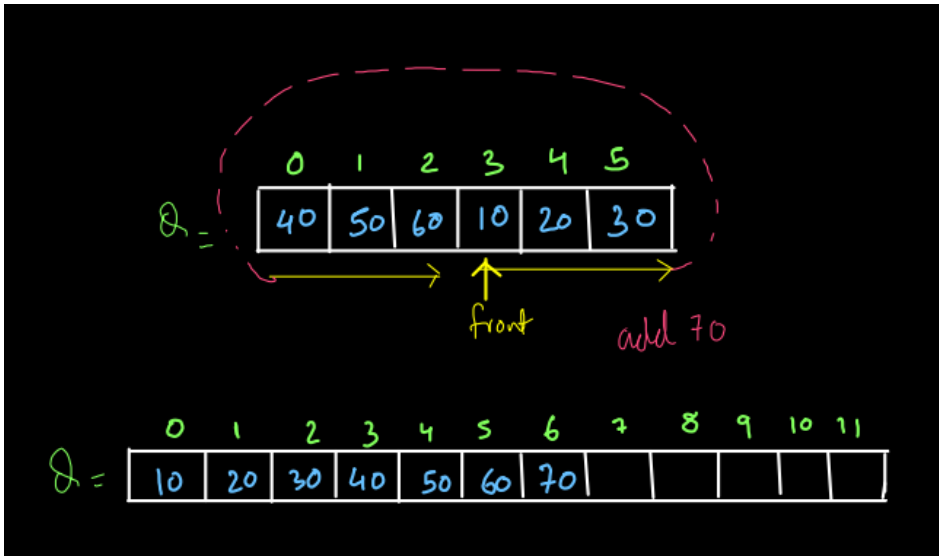 0 1 2 3 4 5
Q = 40 50 60 10 20 30
front
add 70
0 1 2 3 4 5 6 7 8 9 10 11
Q = 10 20 30 40 50 60 70